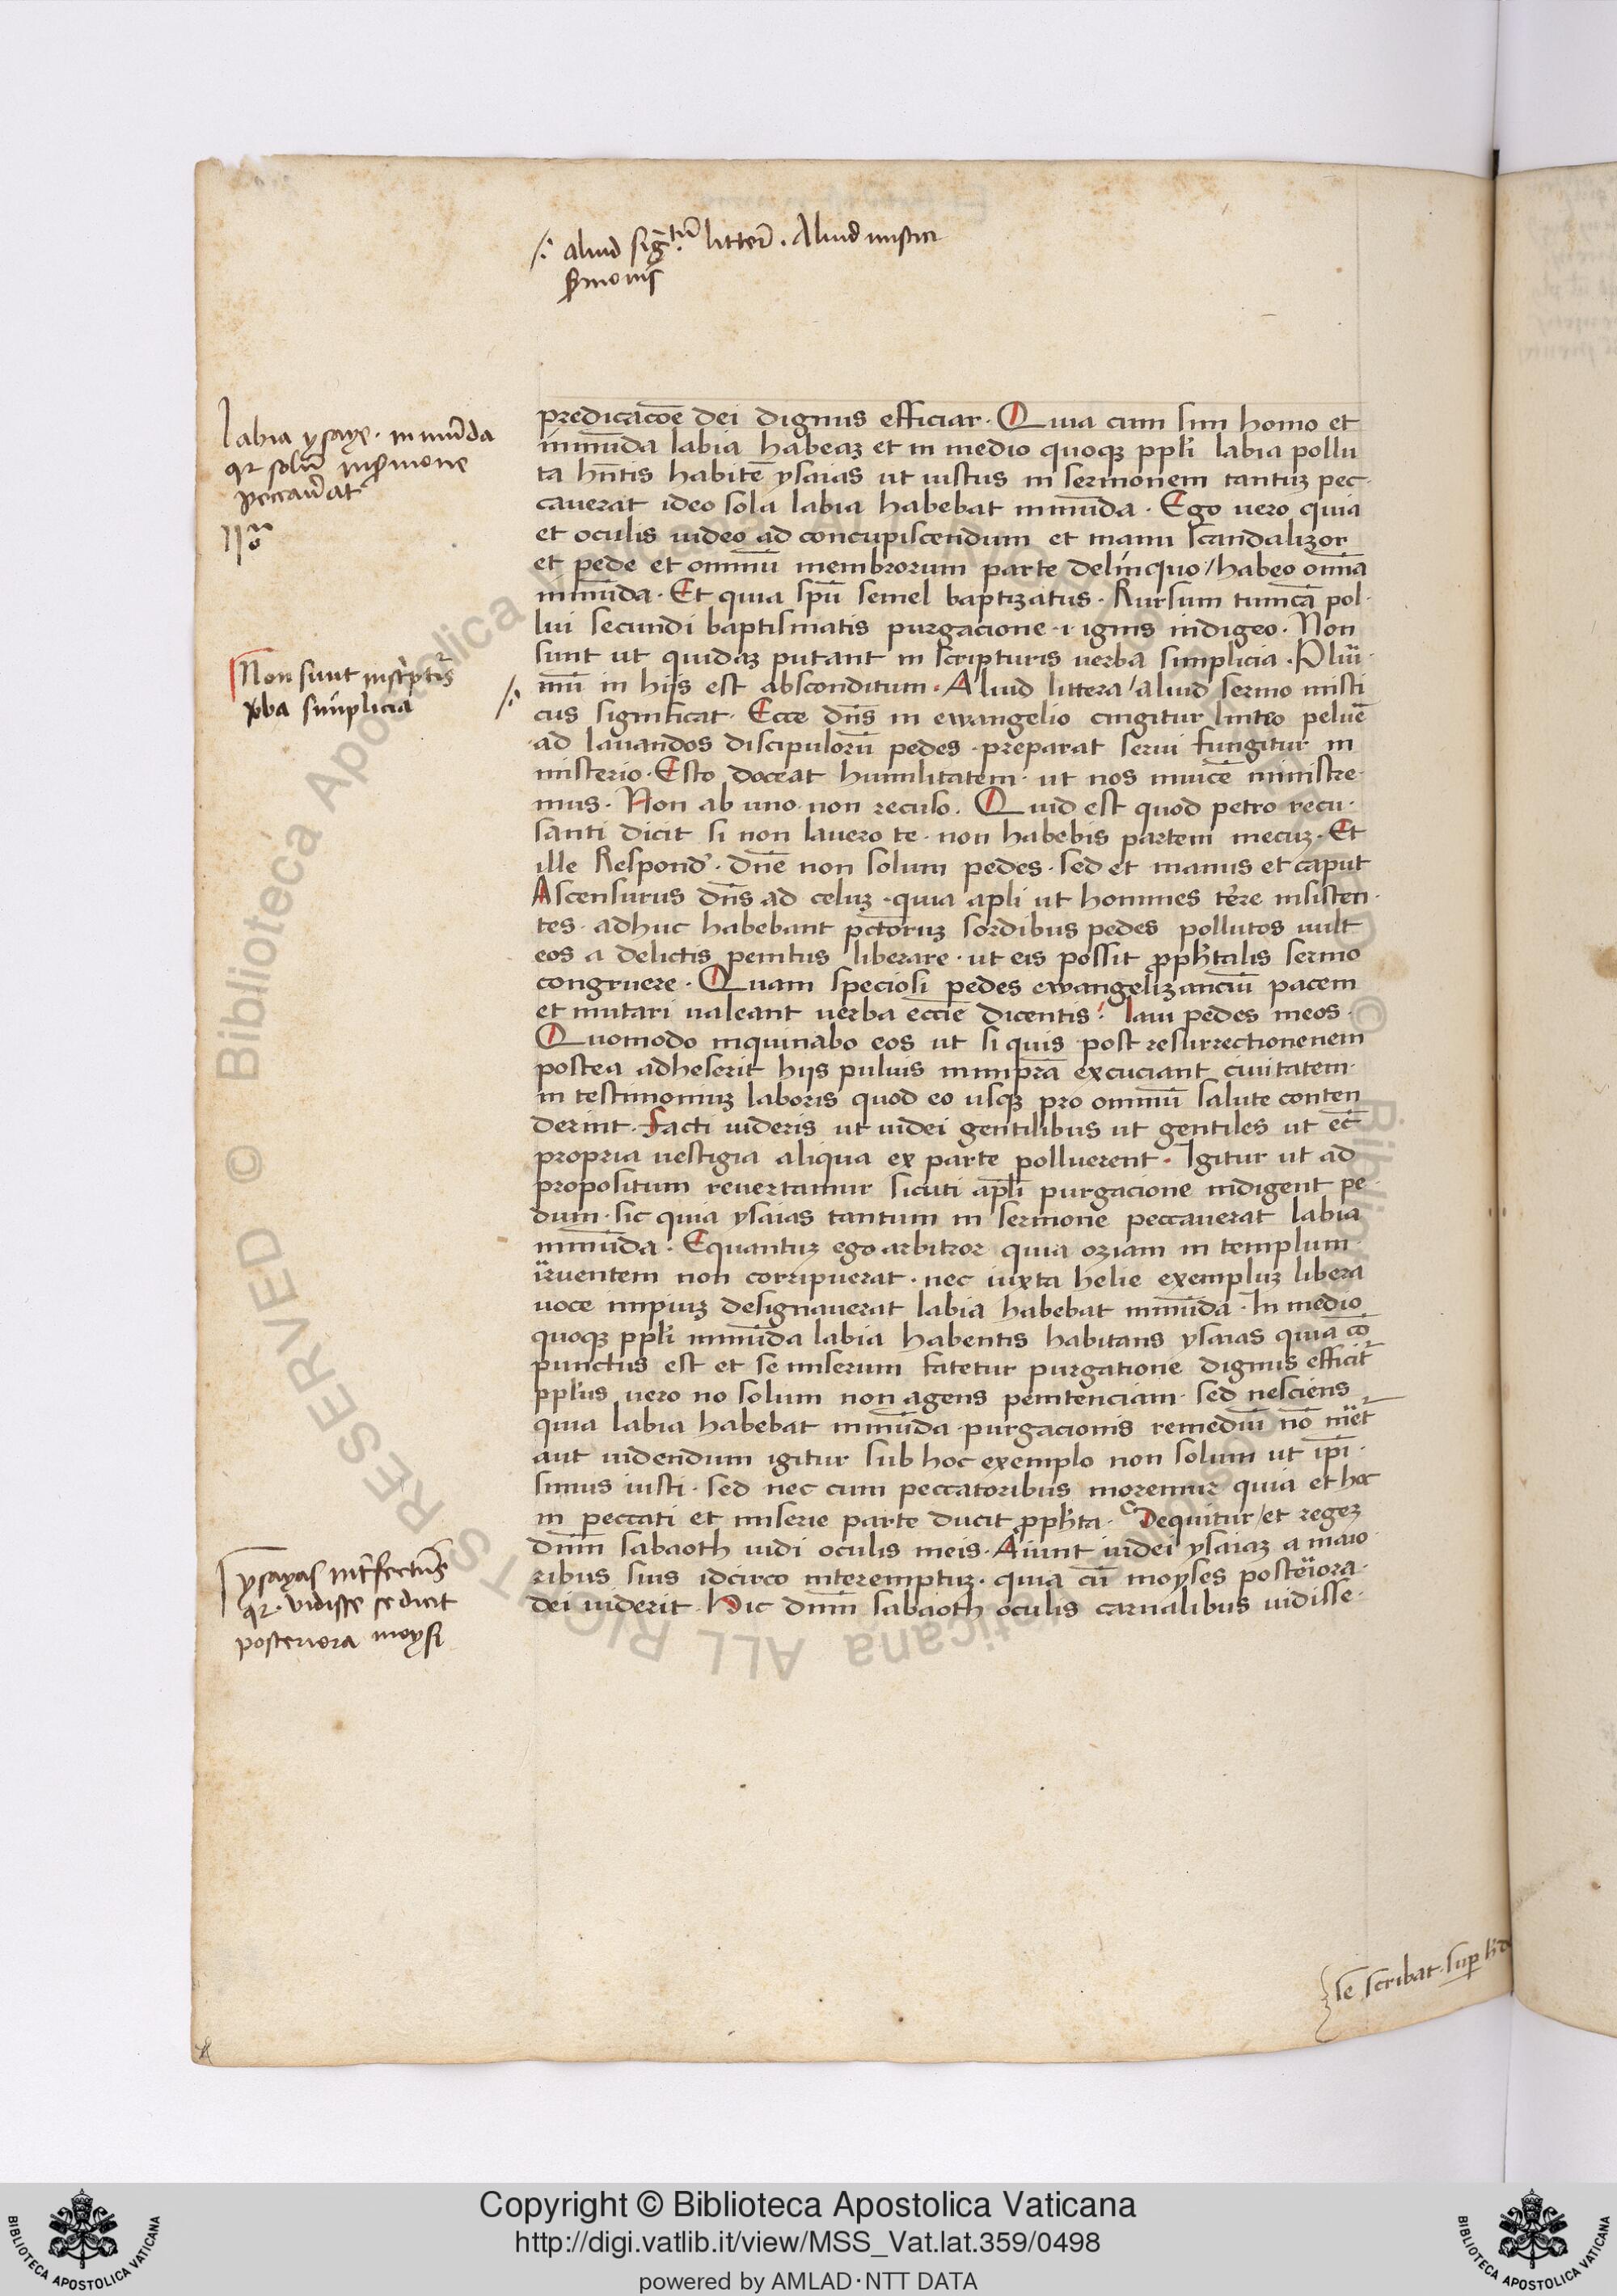 /: aliud sigtū litter̄. Aliud mistici
s̄monis
Labia ysaye. inmūda
qr solū in s̄mone
peccau̾at
Non sunt in sc̾ptis
v̾ba simplicia
/:
predicacōe dei dignus efficiar. Quia cum sim homo et
inmūda labia habeaz et in medio quoqz ppl̄i labia pollu
ta hn̄tis habitē ysaias ut iustus in sermonem tantuz pec-
cauerat ideo sola labia habebat inmūda. Ego uero quia
et oculis uideo ad concupiscendum et manu scandalizor
et pede et omniū membrorum parte delinquo/habeo om̄ia
inmūda. Et quia spū semel baptizatus. Rursum tunicā pol-
lui secundi baptismatis purgacione .i. ignis indigeo. Non
sunt ut quidaz putant in scripturis uerba simplicia. Pluri-
mū in hijs est absconditum. Aliud littera/aliud sermo misti
cus significat. Ecce dn̄s in ewangelio cingitur linteo peluē
ad lauandos discipulorū pedes. preparat serui fungitur m
misterio. Esto doceat humilitatem. ut nos inuicē ministre-
mus. Non ab uno non recuso. Quid est quod petro recu-
santi dicit si non lauero te. non habebis partem mecuz. Et
ille Respond̾. dn̄e non solum pedes. sed et manus et caput
Ascensurus dn̄s ad celuz. quia apl̄i ut homines t̾re insisten-
tes. adhuc habebant pctōruz sordibus pedes pollutos uult
eos a delictis penitus liberare. ut eis possit pph̄talis sermo
congruere. Quam speciosi pedes ewangelizanciū pacem
et mutari ualeant uerba eccīe dicentis: laui pedes meos.
Quomodo inquinabo eos ut si quis post resurrectionenem
postea adheserit hijs puluis in inprā excuciant ciuitatem.
in testimoniuz laboris quod eo usqz pro omniū salute conten
derint. facti uideris ut iudei gentilibus ut gentiles ut ec̄
propria uestigia aliqua ex parte polluerent. Igitur ut ad
propositum reuertamur sicuti apl̄i purgacione indigent pe
dum. sic quia ysaias tantum in sermone peccauerat labia
inmūda. Equantuz ego arbitror quia oziam in templum.
irruentem non corripuerat. nec iuxta helie exempluz libera
uoce impiuz designauerat labia habebat inmūda. In medio
quoqz ppl̄i inmūda labia habentis habitans ysaias quia cō
punctus est et se miserum fatetur purgatione dignus efficit̾
ppl̄us uero no solum non agens penitenciam. sed nesciens
quia labia habebat inmūda purgacionis remediū nō m̾et̾
aut uidendum igitur sub hoc exemplo non solum ut ip̄i.
simus iusti. sed nec cum peccatoribus moremur quia et hoc
in peccati et miserie parte ducit pph̄ta. Dequitur/et regez
dn̄m sabaoth uidi oculis meis. Aiunt iudei ysaiaz a maio
ribus suis idcirco interemptuz. quia cū moyses posteriora.
dei uiderit. Hic dn̄m sabaoth oculis carnalibus uidisse.
ysayas int̾fectus
qr. vidisse se dicit
posteriora moysi
se scribat. sup
© Biblioteca Apostolica Vaticana ALL RIGHTS RESERVED
Copyright © Biblioteca Apostolica Vaticana
http://digi.vatlib.it/view/MSS_Vat.lat.359/0498
powered by AMLAD·NTT DATA
BIBLIOTECA APOSTOLICA VATICANA
BIBLIOTECA APOSTOLICA VATICANA